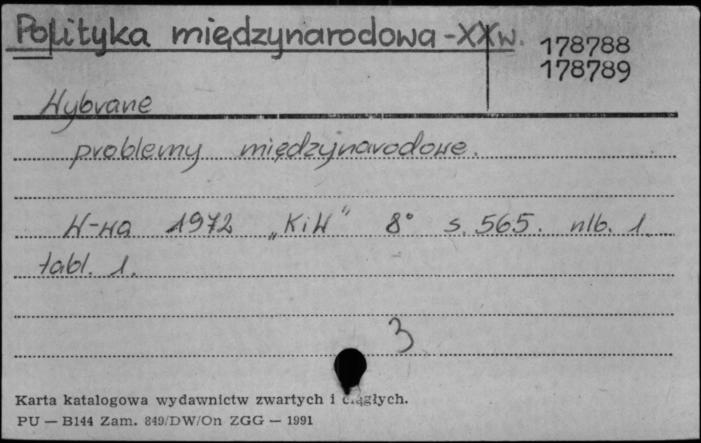 Polityka międzynarodowa - XX w. 178788
178789
Wybrane
problemy międzynarodowe.
W-wa 1972 „KiW" 8° s. 565. nlb. 1.
tabl. 1.
3
Karta katalogowa wydawnictw zwartych i ciągłych.
PU — B144 Zam. 849/DW/On ZGG — 1991